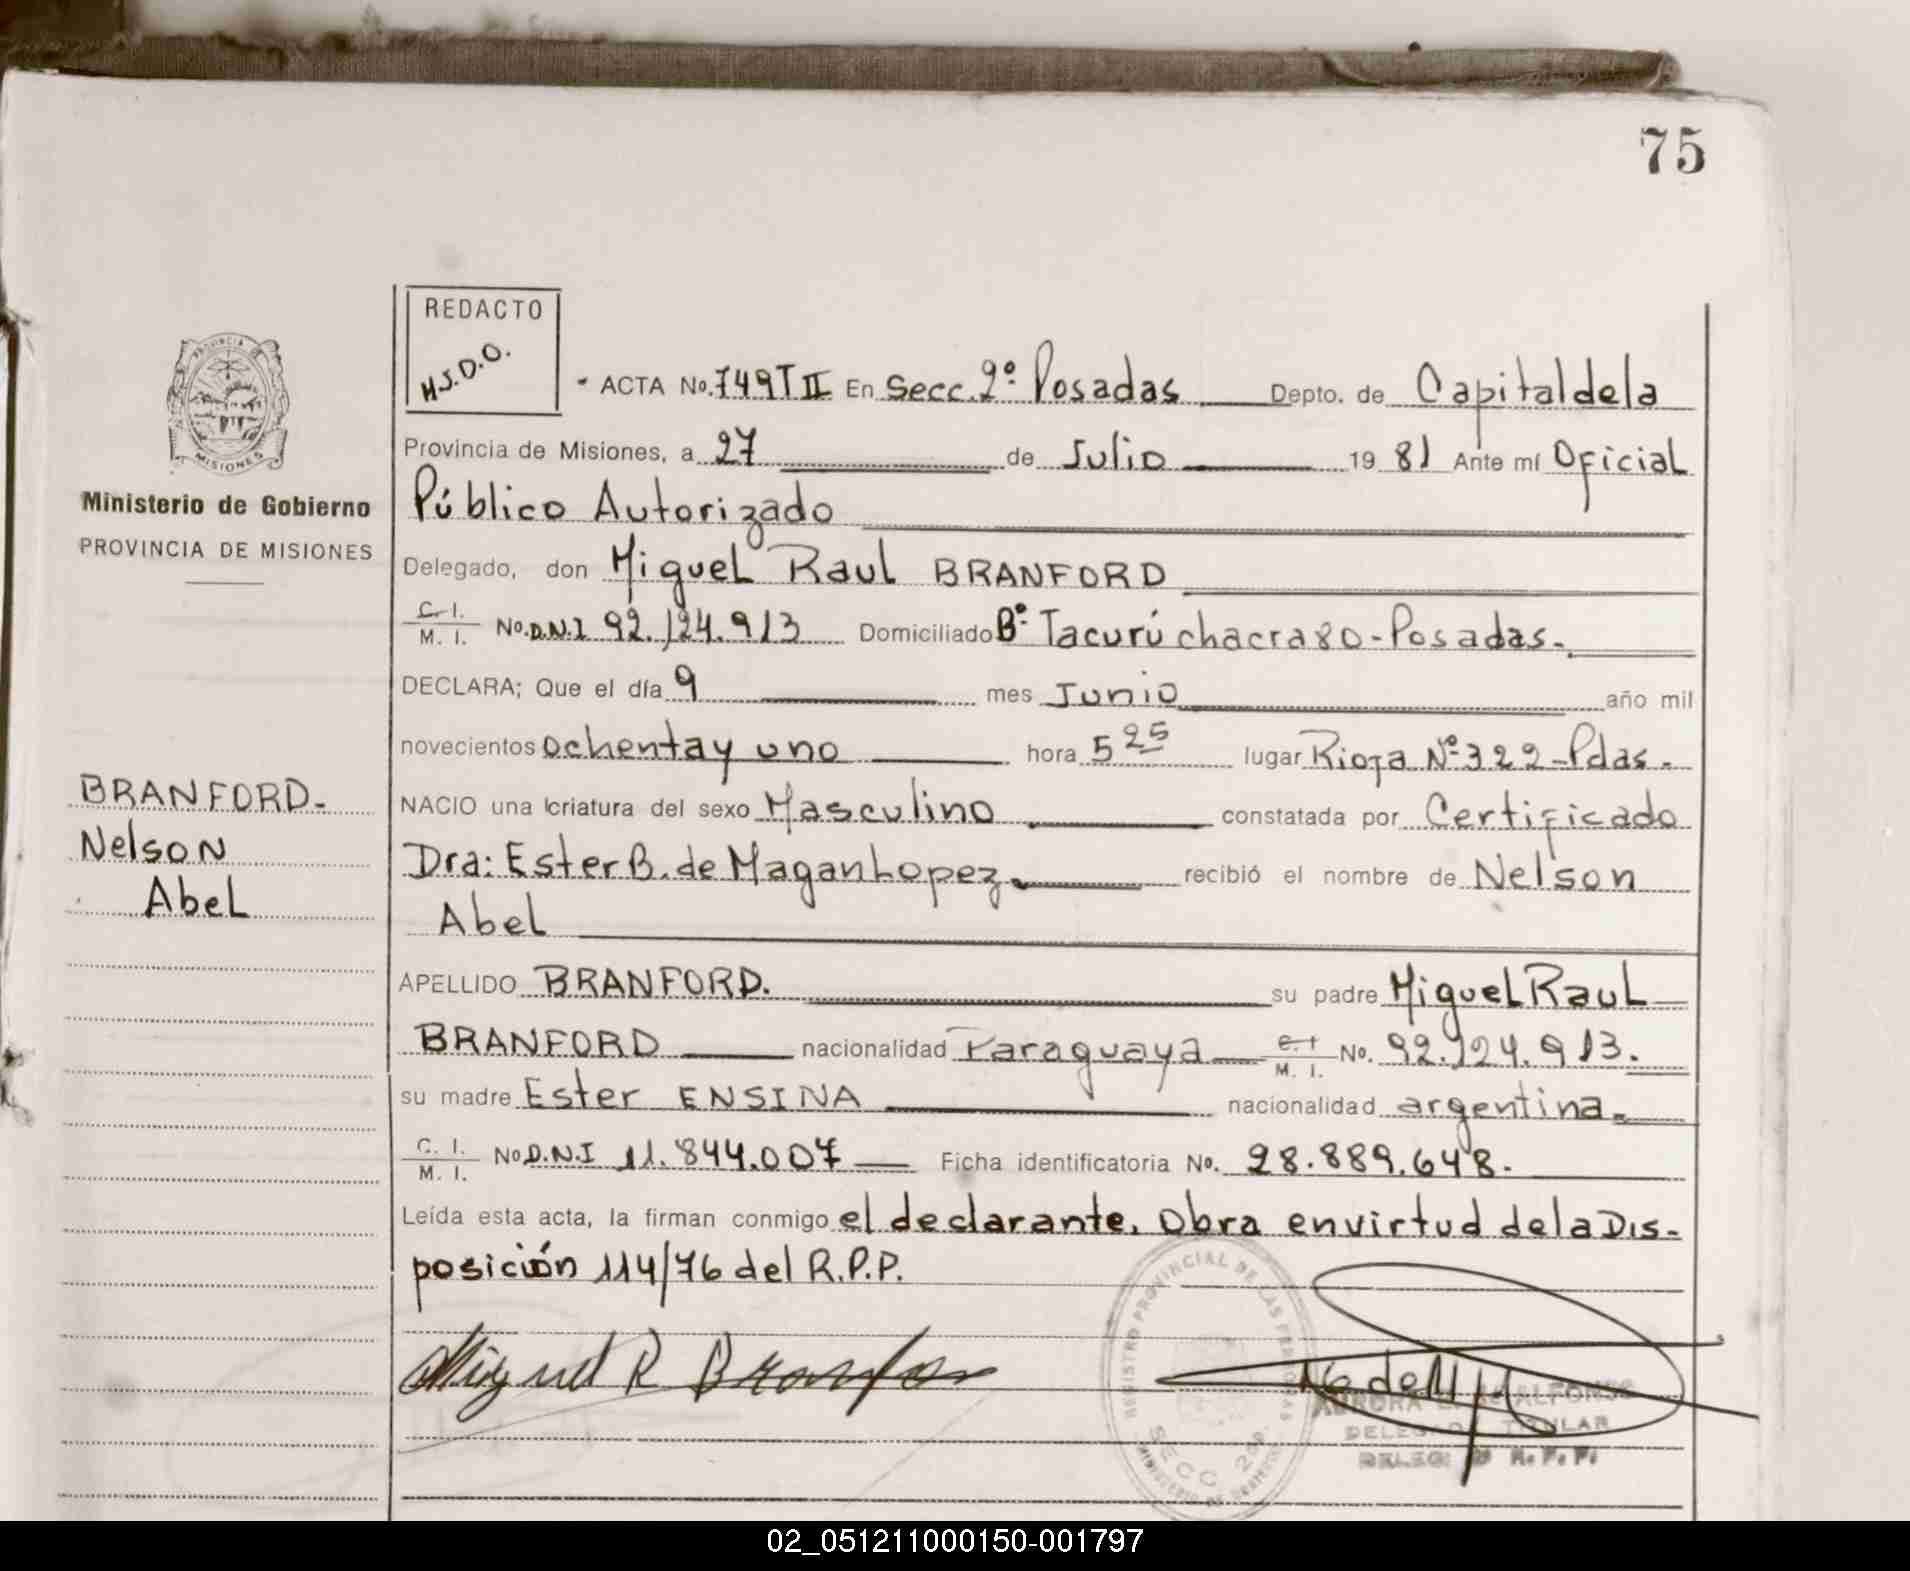 75
REDACTO
H.J.D.O.
ACTA No. 749 T II En Secc. 2º Posadas Depto. de Capital de la
Provincia de Misiones, a 27 de Julio 19 81 Ante mí Oficial
Público Autorizado
Delegado, don Miguel Raul BRANFORD
C. I.
M. I. No. D.N.I 92.124.913 Domiciliado Bº Tacurú chacra 80 - Posadas.
DECLARA; Que el día 9 mes Junio año mil
novecientos ochenta y uno hora 5 25 lugar Rioja Nº 322 - Pdas.
NACIO una criatura del sexo Masculino constatada por Certificado
Dra: Ester B. de Magan Lopez. recibió el nombre de Nelson
Abel
APELLIDO BRANFORD. su padre Miguel Raul
BRANFORD nacionalidad Paraguaya C. I
M. I. No. 92.124.913.
su madre Ester ENSINA nacionalidad argentina.
C. I.
M. I. No D.N.I 11.844.007 Ficha identificatoria No. 28.889.648.
Leída esta acta, la firman conmigo el declarante, Obra en virtud de la Dis-
posición 114/76 del R.P.P.
Miguel R Branford
REGISTRO PROVINCIAL DE LAS PERSONAS
SECC. 2da
MINISTERIO DE GOBIERNO
ALFONSO
TITULAR
R. P. P.
PROVINCIA DE
MISIONES
Ministerio de Gobierno
PROVINCIA DE MISIONES
BRANFORD-
Nelson
Abel
02_051211000150-001797